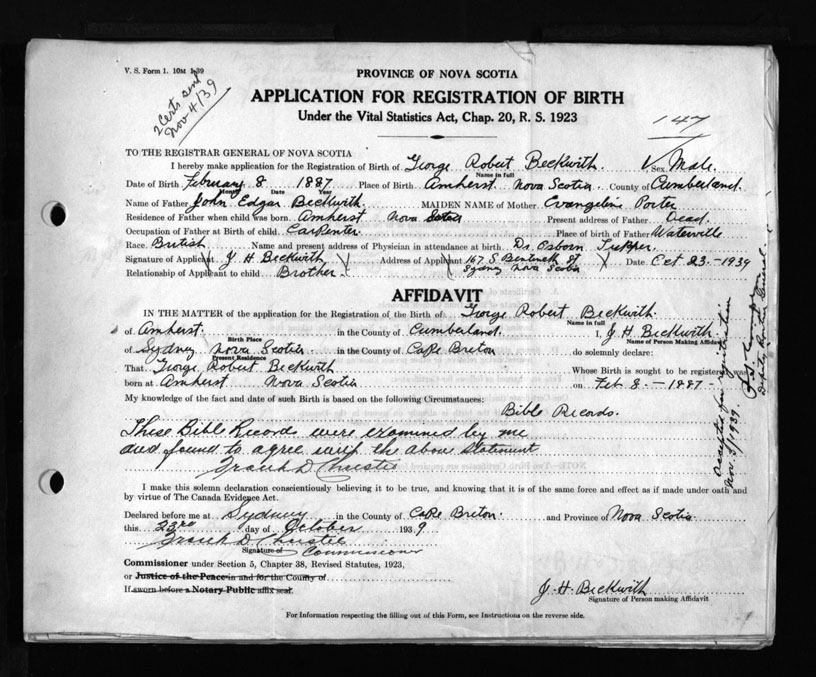 V. S. Form 1. 10M 1-39
2 Certs send
Nov 4/39
PROVINCE OF NOVA SCOTIA
APPLICATION FOR REGISTRATION OF BIRTH
Under the Vital Statistics Act, Chap. 20, R. S. 1923
147
TO THE REGISTRAR GENERAL OF NOVA SCOTIA
I hereby make application for the Registration of Birth of George Robert Beckwith. Sex Male.
Name in full
Date of Birth February 8 1887 Place of Birth Amherst Nova Scotia County of Cumberland.
Month Date Year
Name of Father John Edgar Beckwith MAIDEN NAME of Mother Evangeline Porter
Residence of Father when child was born Amherst Nova Scotia Present address of Father Dead.
Occupation of Father at Birth of child Carpenter. Place of birth of Father Waterville
Race British Name and present address of Physician in attendance at birth Dr. Osborn Tupper.
Signature of Applicant J H Beckwith Address of Applicant 167 S Bentinck St Date Oct 23-1939
Sydney Nova Scotia
Relationship of Applicant to child Brother
AFFIDAVIT
IN THE MATTER of the application for the Registration of the Birth of George Robert Beckwith.
Name in full
of Amherst. in the County of Cumberland. I, J H Beckwith
Birth Place Name of Person making Affidavit
of Sydney Nova Scotia in the County of Cape Breton do solemnly declare:
Present Residence
That George Robert Beckwith Whose Birth is sought to be registered was
born at Amherst Nova Scotia on Feb 8 - 1887 -
My knowledge of the fact and date of such Birth is based on the following Circumstances:
Bible Records.
These Bible Records were examined by me
and found to agree with the above statement
Frank D Christie
I make this solemn declaration conscientiously believing it to be true, and knowing that it is of the same force and effect as if made under oath and
by virtue of The Canada Evidence Act.
Declared before me at Sydney in the County of Cape Breton and Province of Nova Scotia
this 23rd day of October 1939
Frank D Christie
Signature of Commissioner
Commissioner under Section 5, Chapter 38, Revised Statutes, 1923,
or Justice of the Peace in and for the County of
If sworn before a Notary Public affix seal.
J. H. Beckwith
Signature of Person making Affidavit
For Information respecting the filling out of this Form, see Instructions on the reverse side.
Accepted for registration
Nov. 3/1939.
Deputy Registrar General